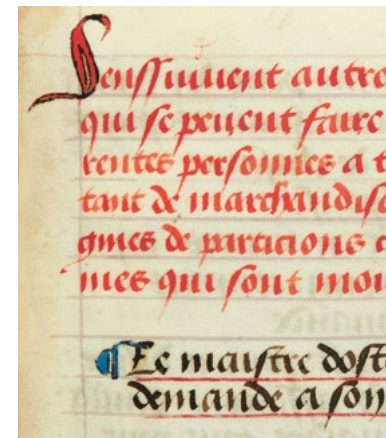 Senssuiuent autre
qui se peuent faire
rentes personnes a t
tant de marchandise
gnies de particions c
mes qui sont mou
Le maistre doste
demande a son